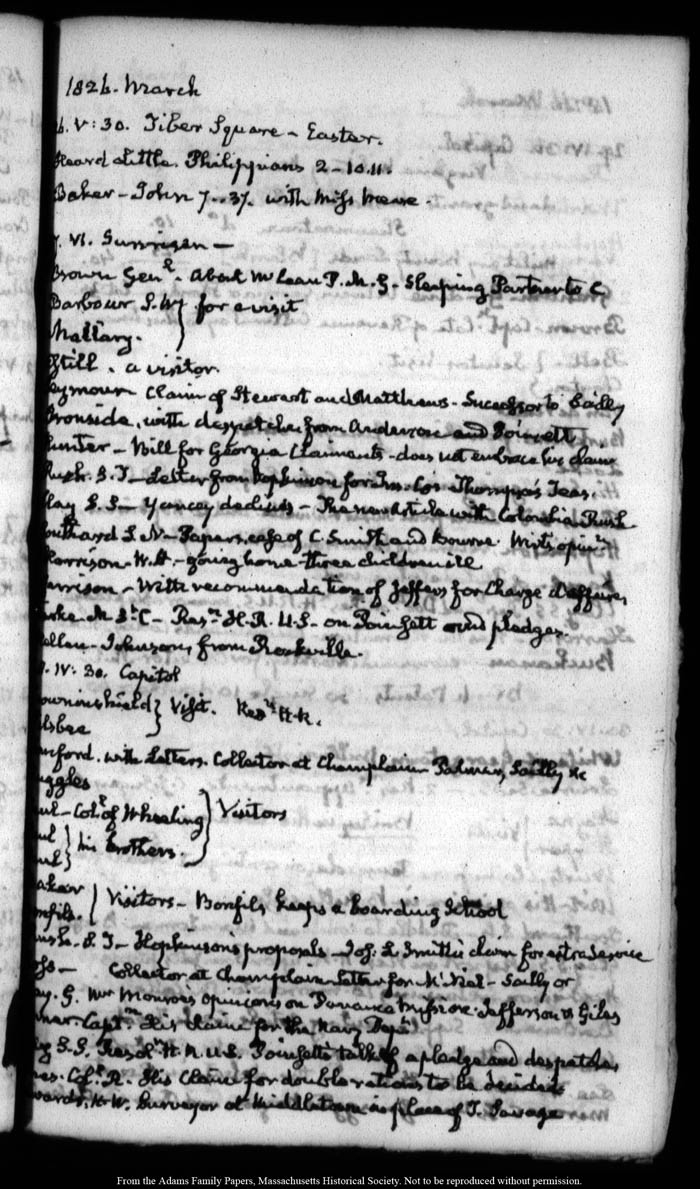 1826. March
6. V:30. Tiber Square - Easter.
Heard Little. Philippians 2-10.11.
Baker - John 7..37. with Miss
7. VI. Sunrise -
Brown Genl. About McLean P.M.G - Sleeping Partner to C
Barbour S.W } for a visit
Mallary. }
Still. a visitor.
eymour Claim of Stewart and Matthews - Successor to Sailly
Ironside, with despatches from Anderson and Poinsett
unter - Bill for Georgia Claimants - does not embrace his claim
Rush. S.T - Letter from Hopkinson for Thompson's Teas.
lay S.S - Yancey declines - The new Article with Colombia Rush
outhard S.N - Papers, case of C. Smith and Bourne. Wirt's opinn
Harrison - W.H. - going home three children ill
arrison - With recommendation of Jeffers for Charge d'affaires
M. S:C - Resn. H.R. U.S. on Poinsett and pledges.
Johnson, from Rockville.
IV:30. Capitol
owninshield } Visit. Resns H.R.
lsbee }
with Letters. Collector at Champlain Palmer, Sailly &c
uggles
Coll. of Wheeling } Visitors
} his brothers. }
aker } Visitors - Bonfils keeps a boarding School
nfils. }
ush. S.T - Hopkinson's proposals - Jos: L Smith's claim for extra Service
Collector at Champlain Letter for - Sailly or
ay. G. Mr Monroe's opinions on Panama mission. Jefferson to Giles
Captn. His claim for the Navy Dept
S.S. Resoln H.R. U.S. Poinsett's talk of a pledge and despatches
Coll. R. His Claim for double rations to be decided
wards. H.W. Surveyor at Middletown in place of T. Savage
From the Adams Family Papers, Massachusetts Historical Society. Not to be reproduced without permission.